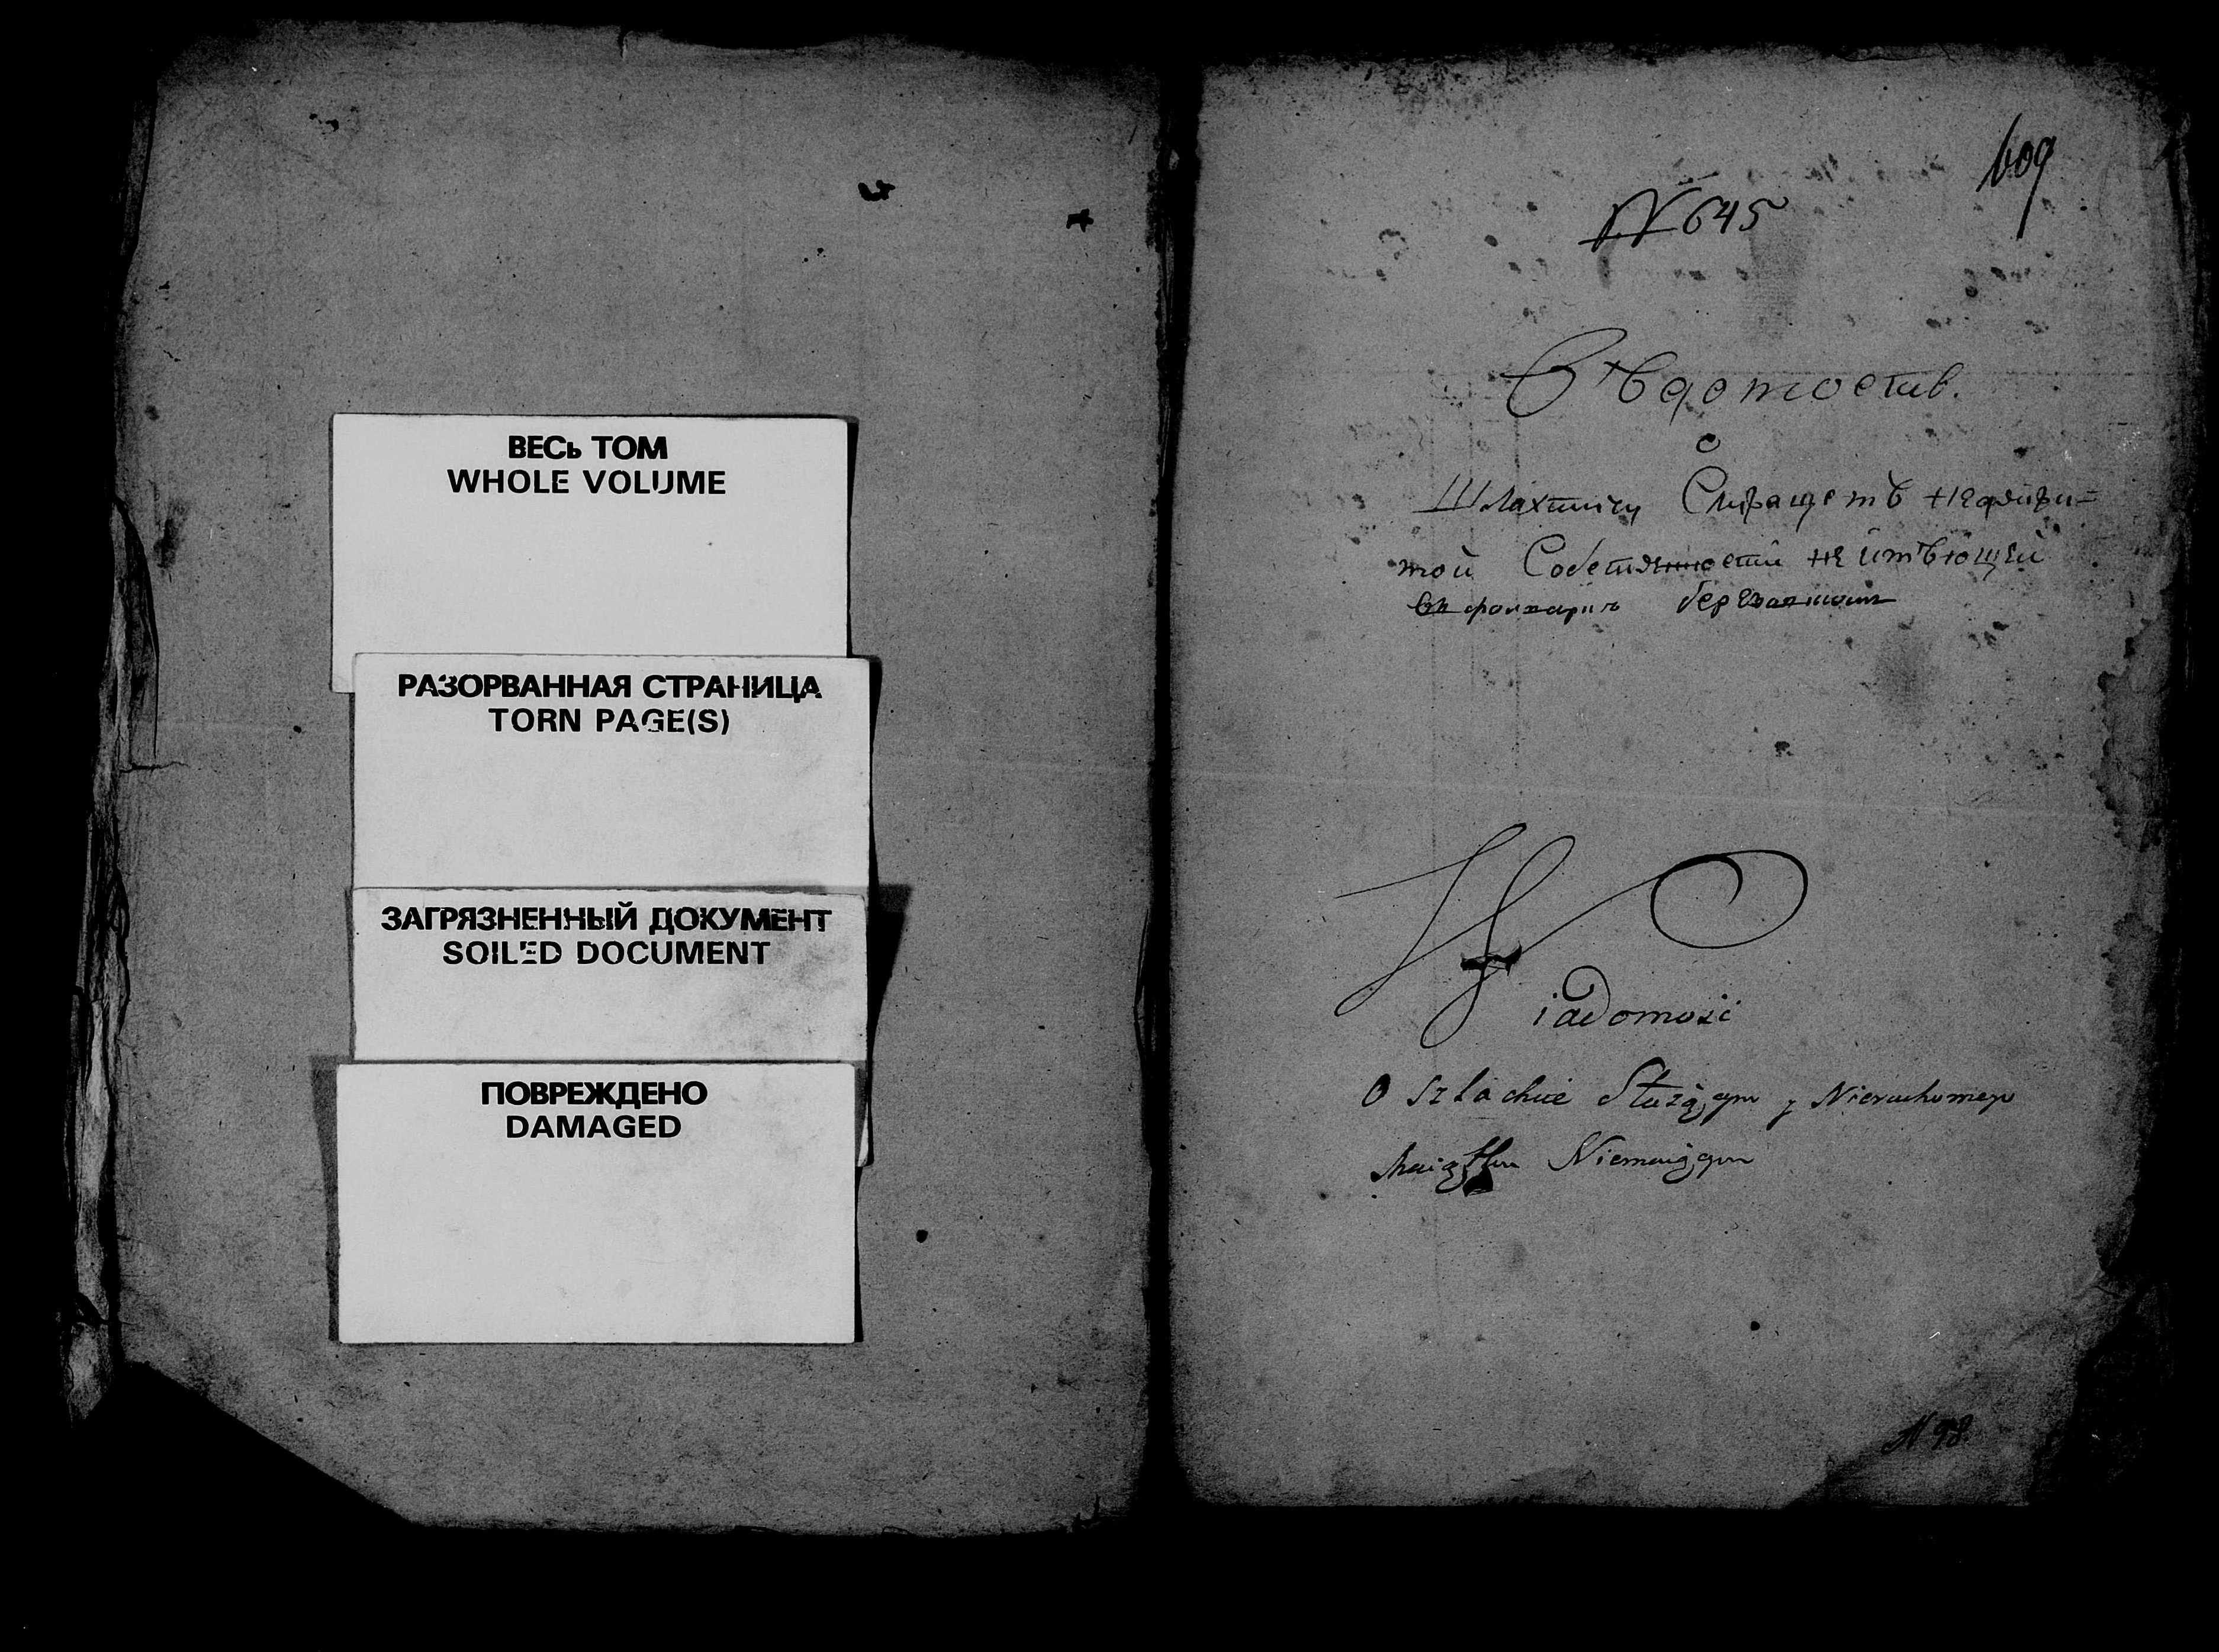 ВЕСЬ ТОМ
WHOLE VOLUME
РАЗОРВАННАЯ СТРАНИЦА
TORN PAGE(S)
ЗАГРЯЗНЕННЫЙ ДОКУМЕНТ
SOILED DOCUMENT
ПОВРЕЖДЕНО
DAMAGED
609
N 645
Вѣдомость.
о
Шляхтичу
мой Собственности не имѣющей
въ
Wiadomość
O Szlachcie Służącym y Nieruchomego
Maiątku Niemaiącym
N 98